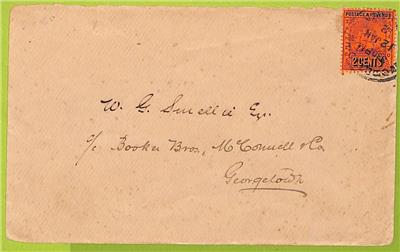 POSTAGE & REVENUE
2 CENTS
W. G. Smellie Esq.
c/o Booker Bros, McConnell & Co
Georgetown